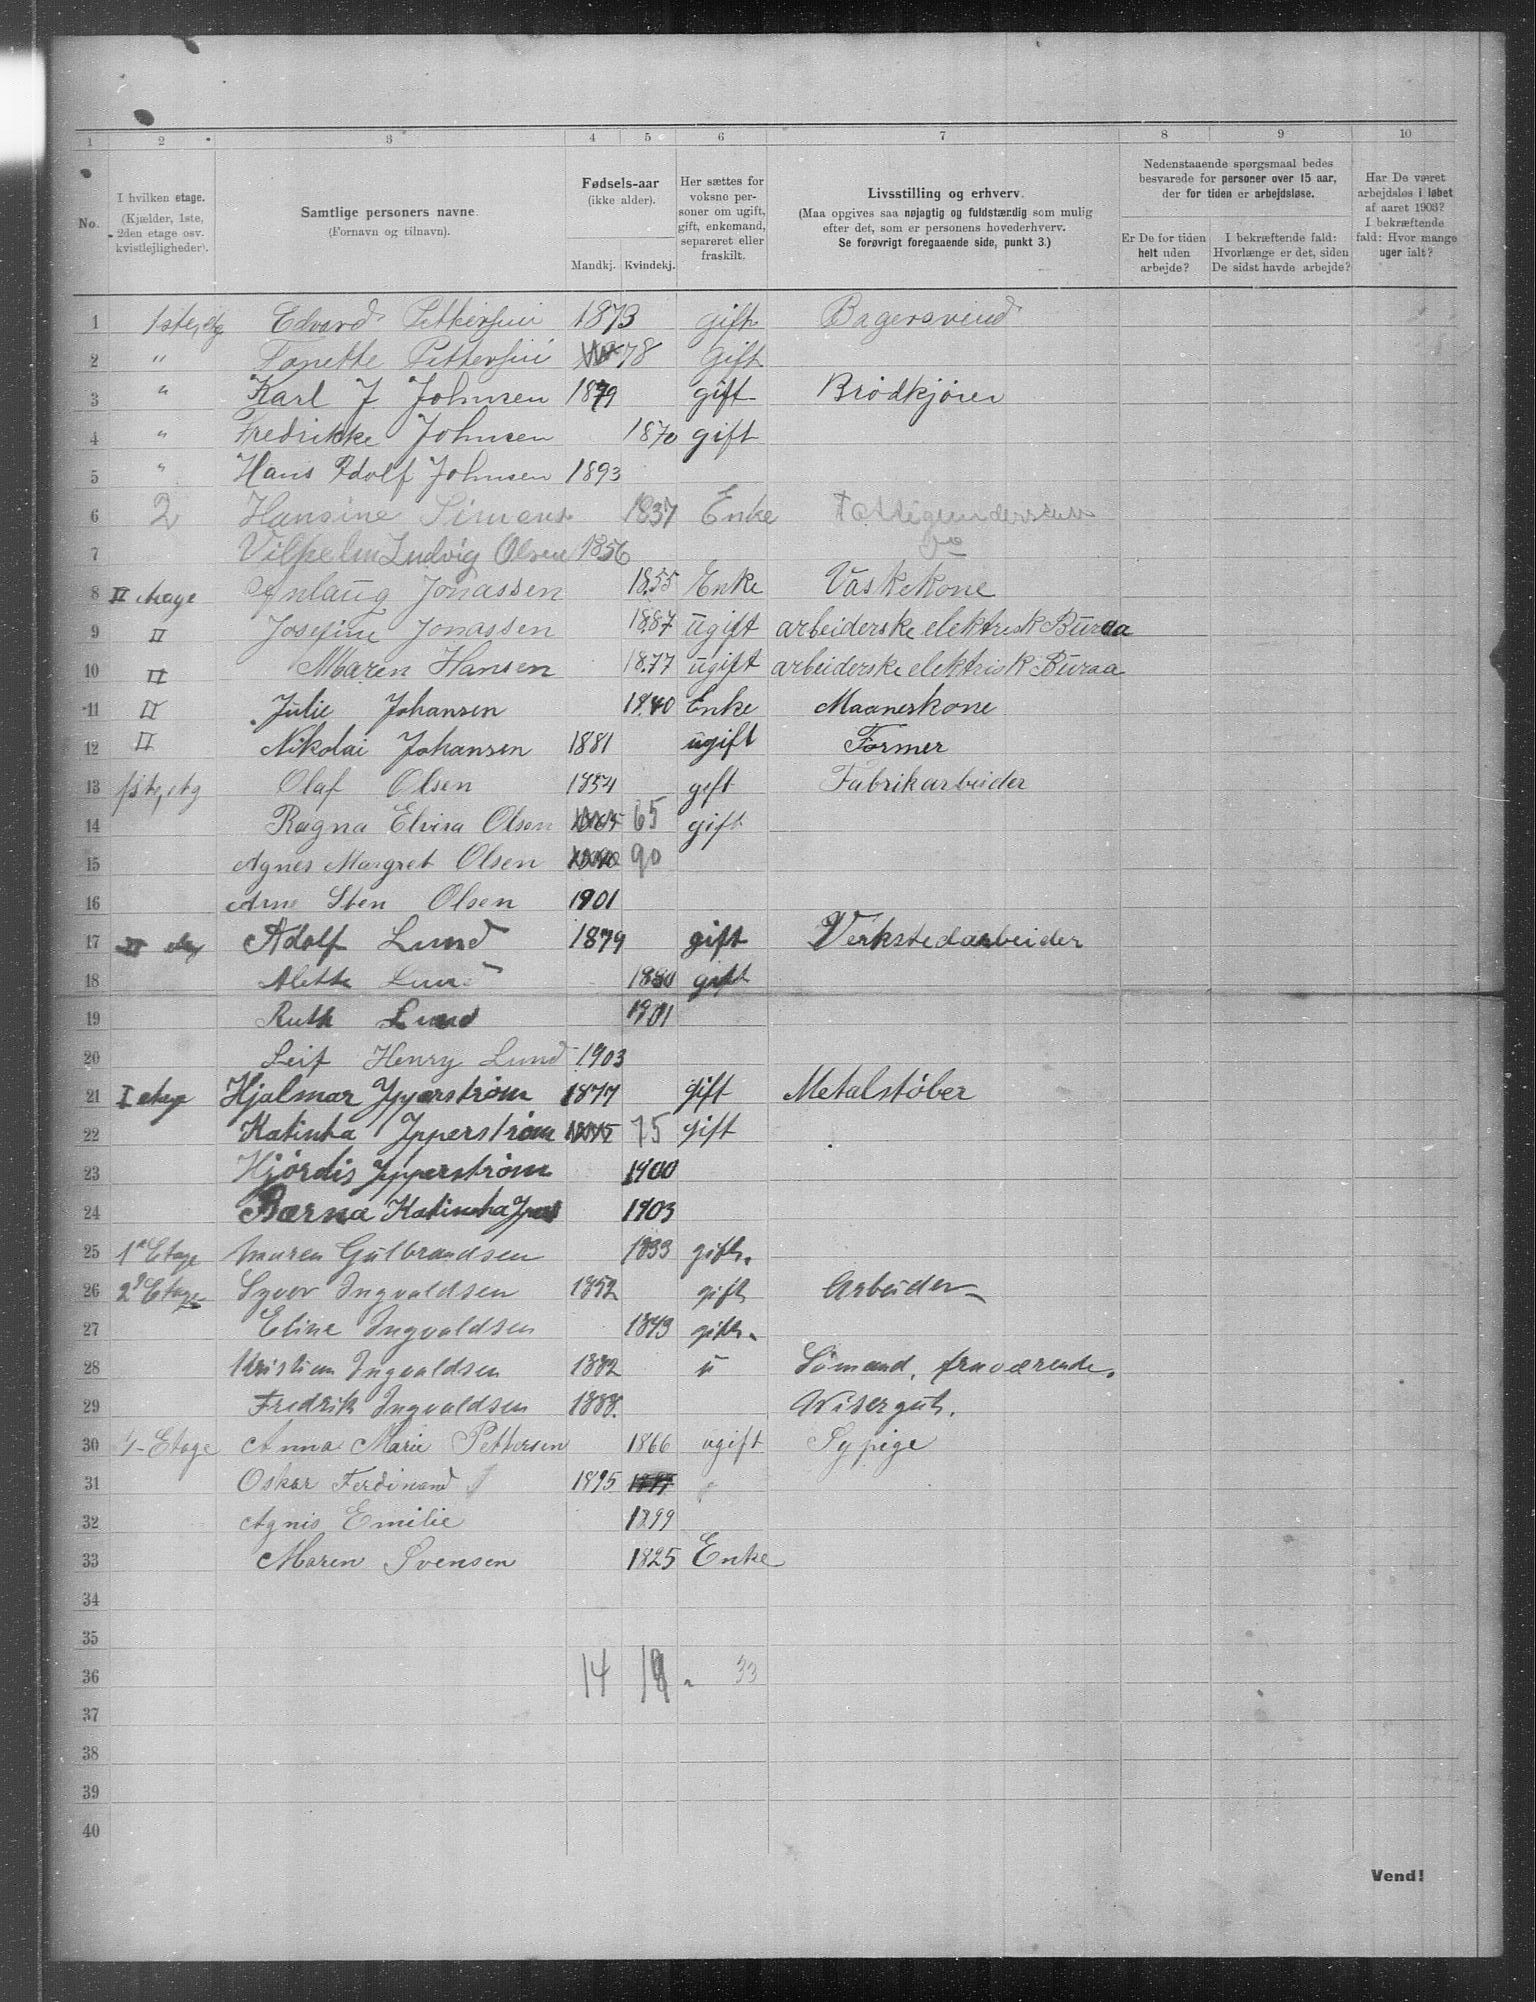 1 2 3 4 5 6 7 8 9 10
No.
I hvilken etage. (Kjælder, 1ste, 2den etage osv. kvistlejligheder).
Samtlige personers navne.
(Fornavn og tilnavn).
Fødsels-aar
(ikke alder).
Mandkj. Kvindekj.
Her sættes for voksne personer om ugift, gift, enkemand, separeret eller fraskilt.
Livsstilling og erhverv.
(Maa opgives saa nøjagtig og fuldstændig som mulig efter det, som er personens hovederhverv.
Se forøvrigt foregaaende side, punkt 3.)
Nedenstaaende spørgsmaal bedes besvarede for personer over 15 aar, der for tiden er arbejdsløse.
Er De for tiden helt uden arbejde?
I bekræftende fald: Hvorlænge er det, siden De sidst havde arbejde?
Har De været arbejdsløs i løbet af aaret 1903? I bekræftende fald: Hvor mange uger ialt?
1 1ste etg Edvard Pettersen 1873 gift Bagersvend
2 " Fanette Pettersen 78 Gift
3 " Karl J. Johnsen 1879 gift Brødkjører
4 " Fredrikke Johnsen 1870 gift
5 " Hans Adolf Johnsen 1893
6 2 Hansine Simens 1837 Enke
7 Vilhelm Ludvig Olsen 1856 do
8 II etage Anlaug Jonassen 1855 Enke Vaskekone
9 II Josefine Jonassen 1887 ugift arbeiderske elektrisk Buraa
10 II Maren Hansen 1877 ugift arbeiderske elektrisk Buraa
11 II Julie Johansen 1840 Enke Maaneskone
12 II Nikolai Johansen 1881 ugift Former
13 1ste etg Olaf Olsen 1854 gift Fabrikarbeider
14 Ragna Elvira Olsen 1865 65 gift
15 Agnes Margret Olsen 1890 90
16 Arne Sten Olsen 1901
17 II etg Adolf Lund 1879 gift Verkstedarbeider
18 Alette Lund 1880 gift
19 Ruth Lund 1901
20 Leif Henry Lund 1903
21 I etage Hjalmar Ypperstrøm 1877 gift Metalstøber
22 Katinka Ypperstrøm 1875 75 gift
23 Hjørdis Ypperstrøm 1900
24 Bærna Katinka 1903
25 1ste Etage Maren Gulbrandsen 1833 gift.
26 2d Etage Syver Ingvaldsen 1852 gift Arbeider
27 Eline Ingvaldsen 1843 gift.
28 Kristian Ingvaldsen 1882 u Sømand, fraværende.
29 Fredrik Ingvaldsen 1888. Visergut.
30 1- Etage Anna Marie Pettersen 1866 ugift Sypige
31 Oskar Ferdinand 1895
32 Agnis Emilie 1899
33 Maren Svensen 1825 Enke
34
35
36 14 18 33
37
38
39
40
Vend!